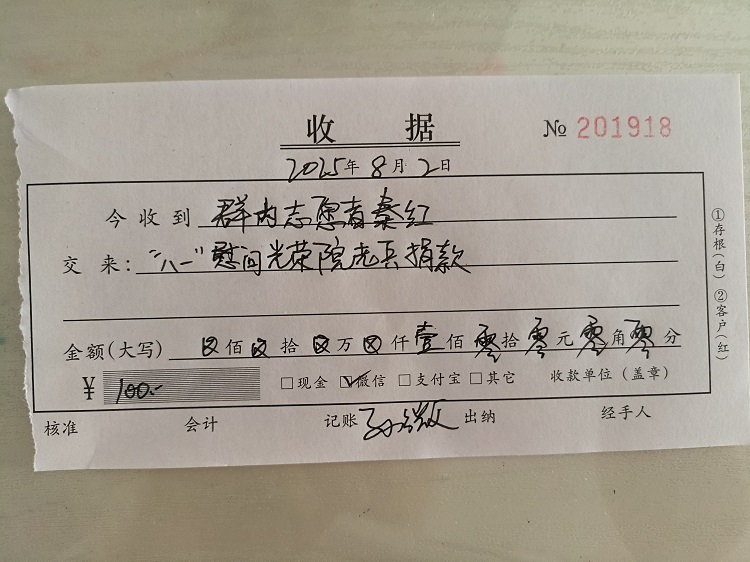 收 据
№ 201918
2025年8月2日
今收到 群内志愿者秦红
交来: "八一"慰问光荣院老兵捐款
金额(大写) ⊗佰⊗拾⊗万⊗仟壹佰零拾零元零角零分
¥ 100.- □现金 ☑微信 □支付宝 □其它 收款单位(盖章)
核准 会计 记账 孙微 出纳 经手人
①存根(白) ②客户(红)